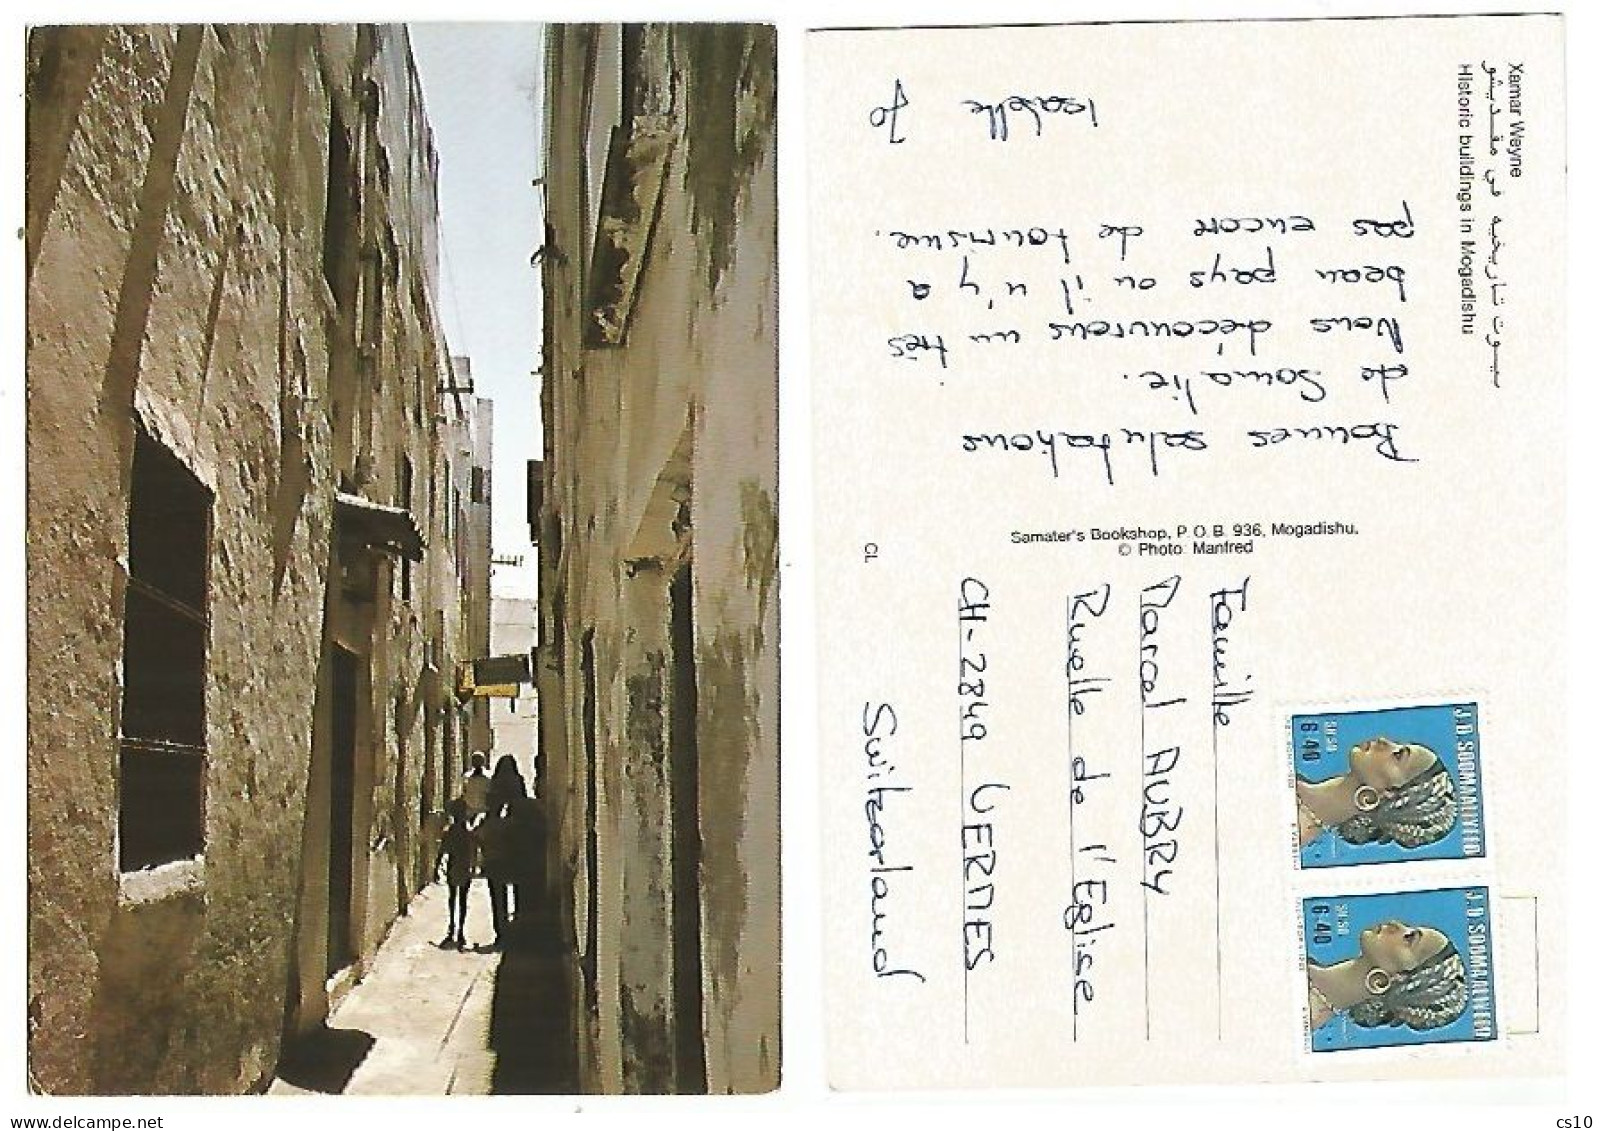 Xamar Weyne
بيوت تاريخيه في مقديشو
Historic buildings in Mogadishu
Bonnes salutations
de Somalie.
Nous découvrons un très
beau pays ou il n'y a
pas encore de tourisme.
Isabelle Jo
Samater's Bookshop, P.O.B. 936, Mogadishu.
© Photo: Manfred
CL
Famille
Marcel AUBRY
Ruelle de l'Eglise
CH-2849 VERMES
Switzerland
J.D. SOOMAALIYEED
SH.SO
6·40
J.D. SOOMAALIYEED
SH.SO
6·40
https://www.delcampe.net
cs10